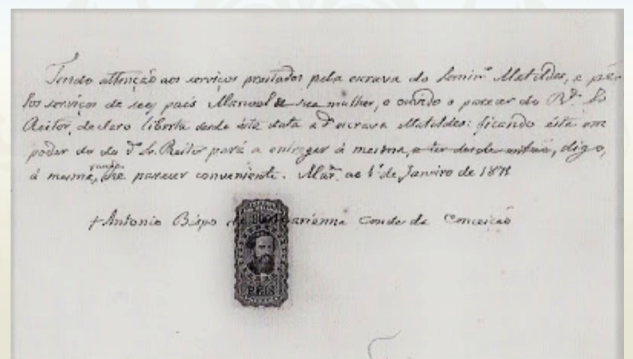 Tendo attenção aos serviços prestados pela escrava do Semin.º Matildes, e pe-
los serviços de seus pais Manoel e sua mulher, e ouvido o parecer do R.do Sr.
Reitor, declaro liberta desde esta data a d.ª escrava Matildes: ficando esta em
poder do d.º Sr. Reitor para a entregar à mesma, e ter desde então, digo,
à mesma, quando lhe parecer conveniente. Mar.na ao 1º de Janeiro de 1871
+ Antonio Bispo de Marianna Conde da Conceição
REIS